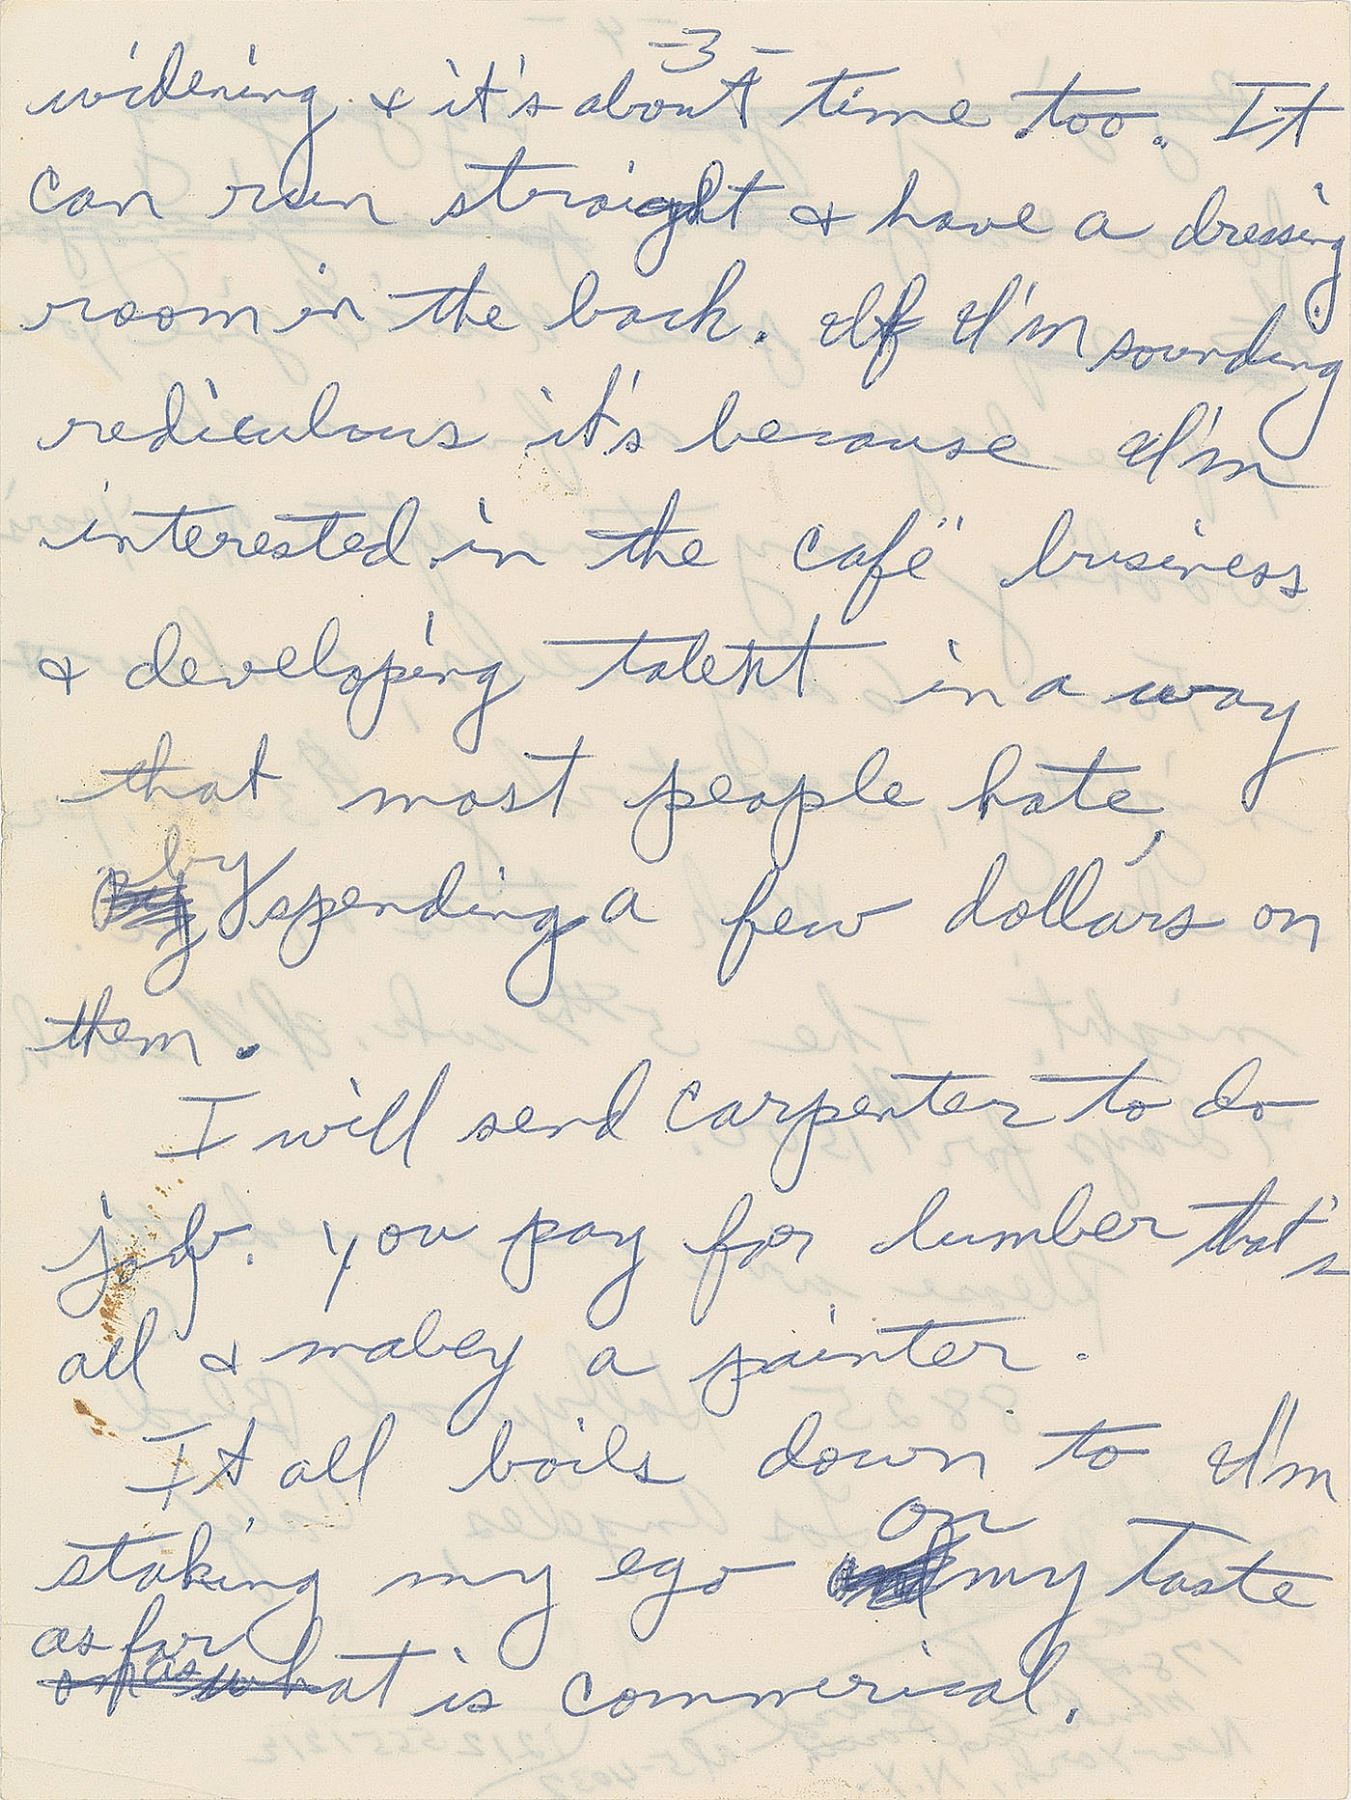 -3-
widening & it's about time too. It
can run straight & have a dressing
room in the back. If I'm sounding
rediculous it's because I'm
interested in the café business
& developing talent in a way
that most people hate,
by spending a few dollars on
them.
I will send carpenter to do
job. you pay for lumber that's
all & mabey a painter.
It all boils down to I'm
on
staking my ego my taste
as far
as what is commerical.